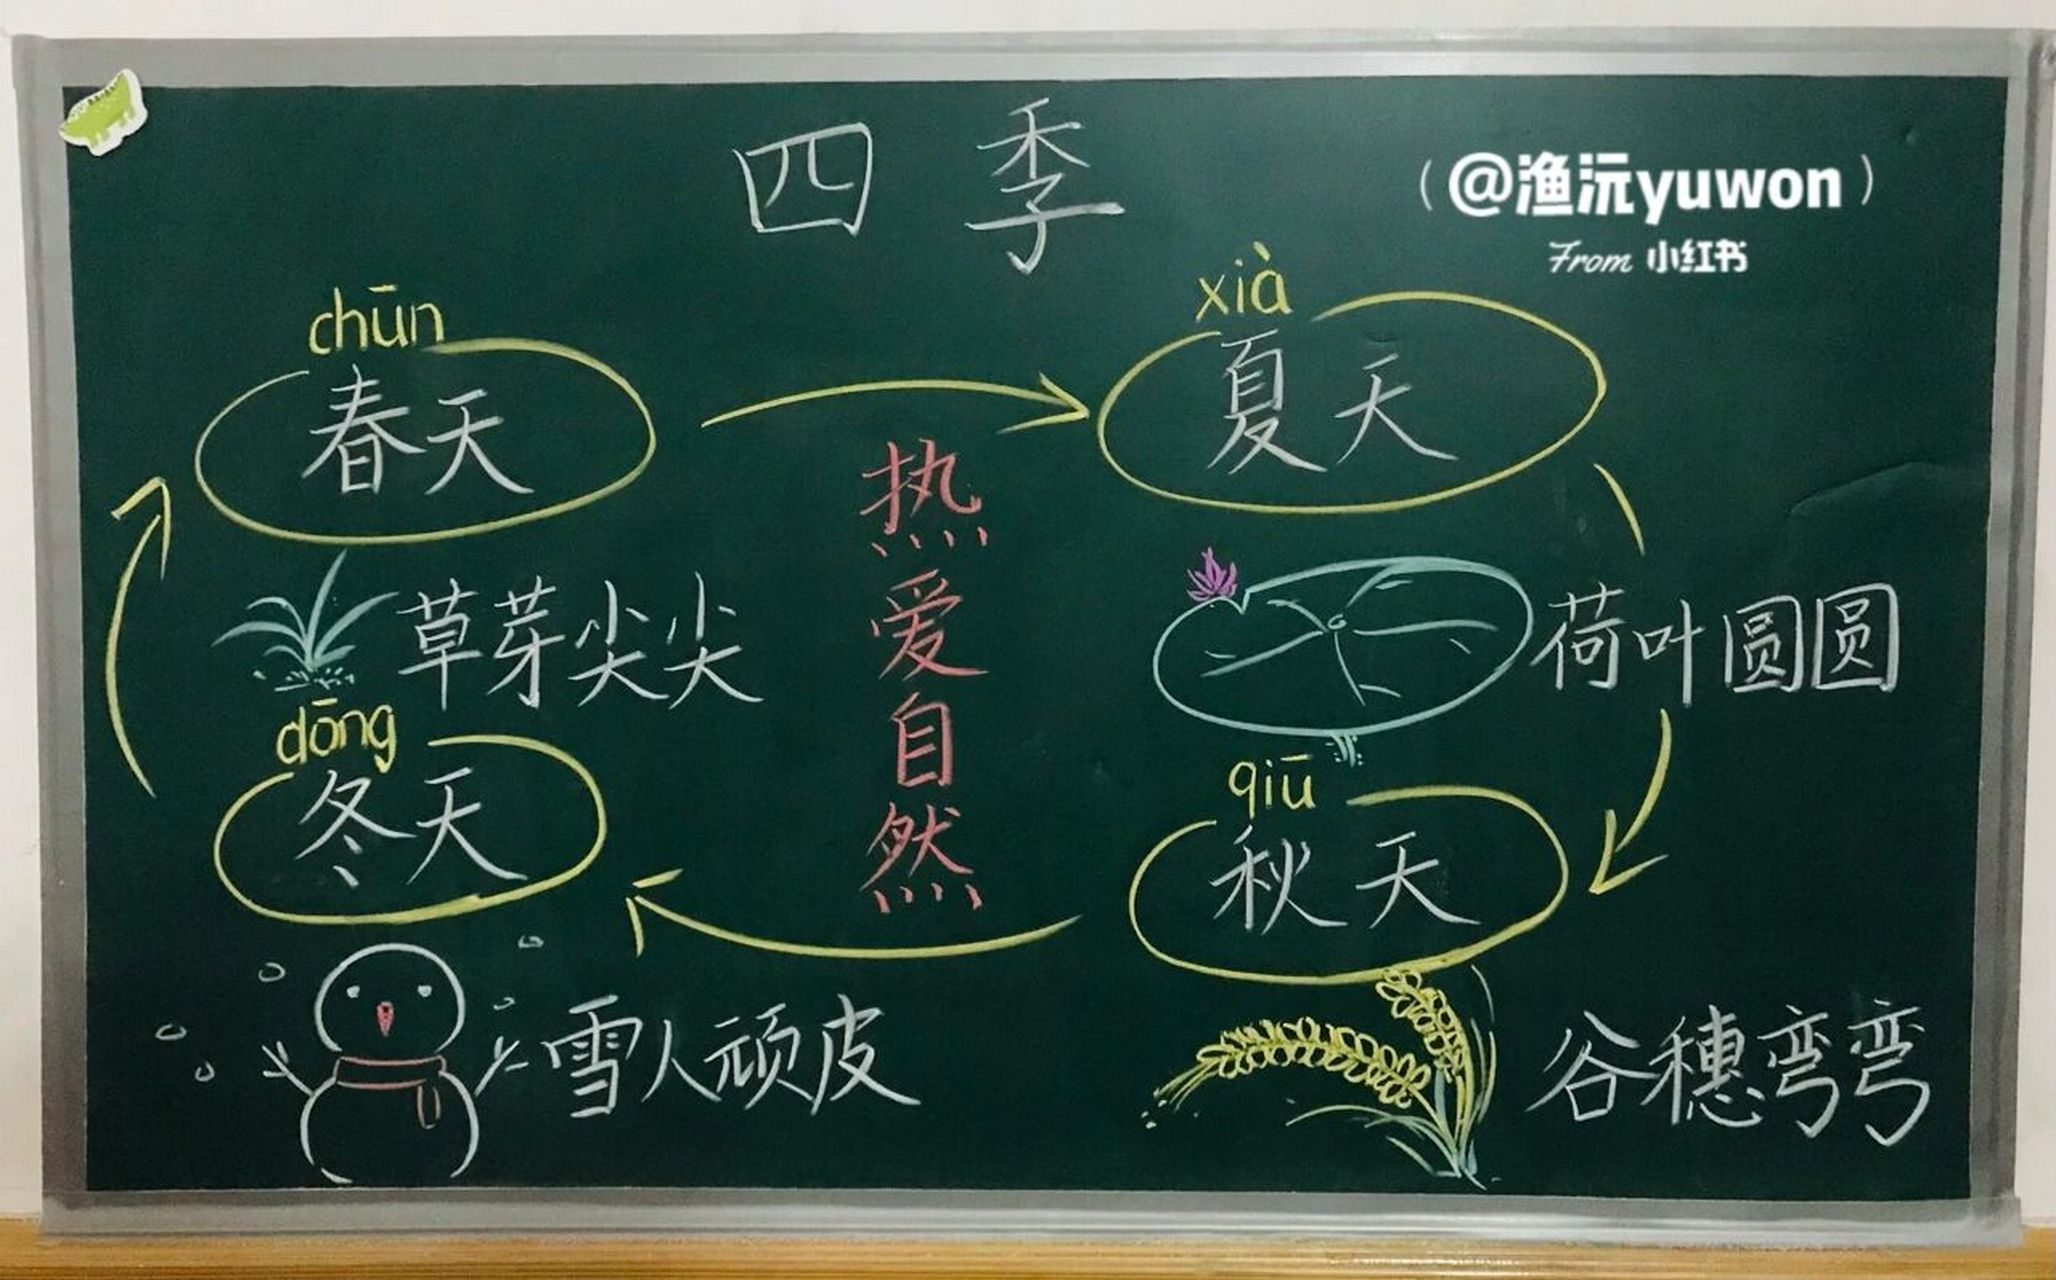 四季
（@渔沅yuwon）
From 小红书
chūn
春天
xià
夏天
草芽尖尖
荷叶圆圆
热爱自然
dōng
冬天
qiū
秋天
雪人顽皮
谷穗弯弯